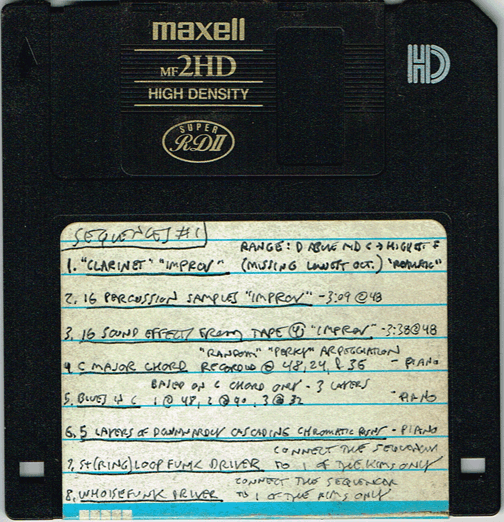 maxell
MF 2HD
HIGH DENSITY
SUPER
RDII
HD
SEQUENCES #1
RANGE: D ABOVE MID C → HIGHEST F
1. "CLARINET" "IMPROV" (MISSING LOWEST OCT.) "REALISTIC"
2. 16 PERCUSSION SAMPLES "IMPROV" - 3:09 @ 48
3. 16 SOUND EFFECT FROM TAPE 4 "IMPROV" - 3:38 @ 48
"RANDOM" "PERKY" ARPEGGIATION
4. C MAJOR CHORD RECORDED @ 48, 24, & 36 - PIANO
BASED ON C CHORD ONLY - 3 LAYERS
5. BLUES IN C 1 @ 48, 2 @ 90, 3 @ 32 - PIANO
6. 5 LAYERS OF DOWNWARDLY CASCADING CHROMATIC RUNS - PIANO
CONNECT THE SEQUENCER
7. St(RING) LOOP FUNK DRIVER TO 1 OF THE KLMS ONLY
CONNECT THE SEQUENCER
8. WHOISEFUNK DRIVER TO 1 OF THE KLMS ONLY